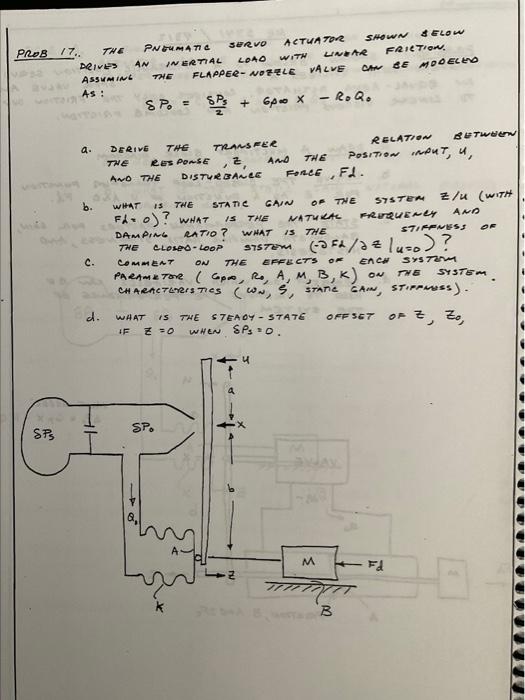 PROB 17. THE PNEUMATIC SERVO ACTUATOR SHOWN BELOW
DRIVES AN INERTIAL LOAD WITH LINEAR FRICTION.
ASSUMING THE FLAPPER-NOZZLE VALVE CAN BE MODELED
AS:
δP₀ = δPs/2 + Gp∞ X - R₀Q₀
a. DERIVE THE TRANSFER RELATION BETWEEN
THE RESPONSE, Z, AND THE POSITION INPUT, U,
AND THE DISTURBANCE FORCE, Fd.
b. WHAT IS THE STATIC GAIN OF THE SYSTEM Z/U (WITH
Fd = 0)? WHAT IS THE NATURAL FREQUENCY AND
DAMPING RATIO? WHAT IS THE STIFFNESS OF
THE CLOSED-LOOP SYSTEM (-∂Fd/∂Z|u=0)?
C. COMMENT ON THE EFFECTS OF EACH SYSTEM
PARAMETOR (Gp∞, R₀, A, M, B, K) ON THE SYSTEM
CHARACTERISTICS (ωN, ζ, STATIC GAIN, STIFFNESS).
d. WHAT IS THE STEADY-STATE OFFSET OF Z, Z₀,
IF Z = 0 WHEN δPs = 0.
u
a
δPs
δP₀
X
b
Q₀
A
M
Fd
Z
K
B